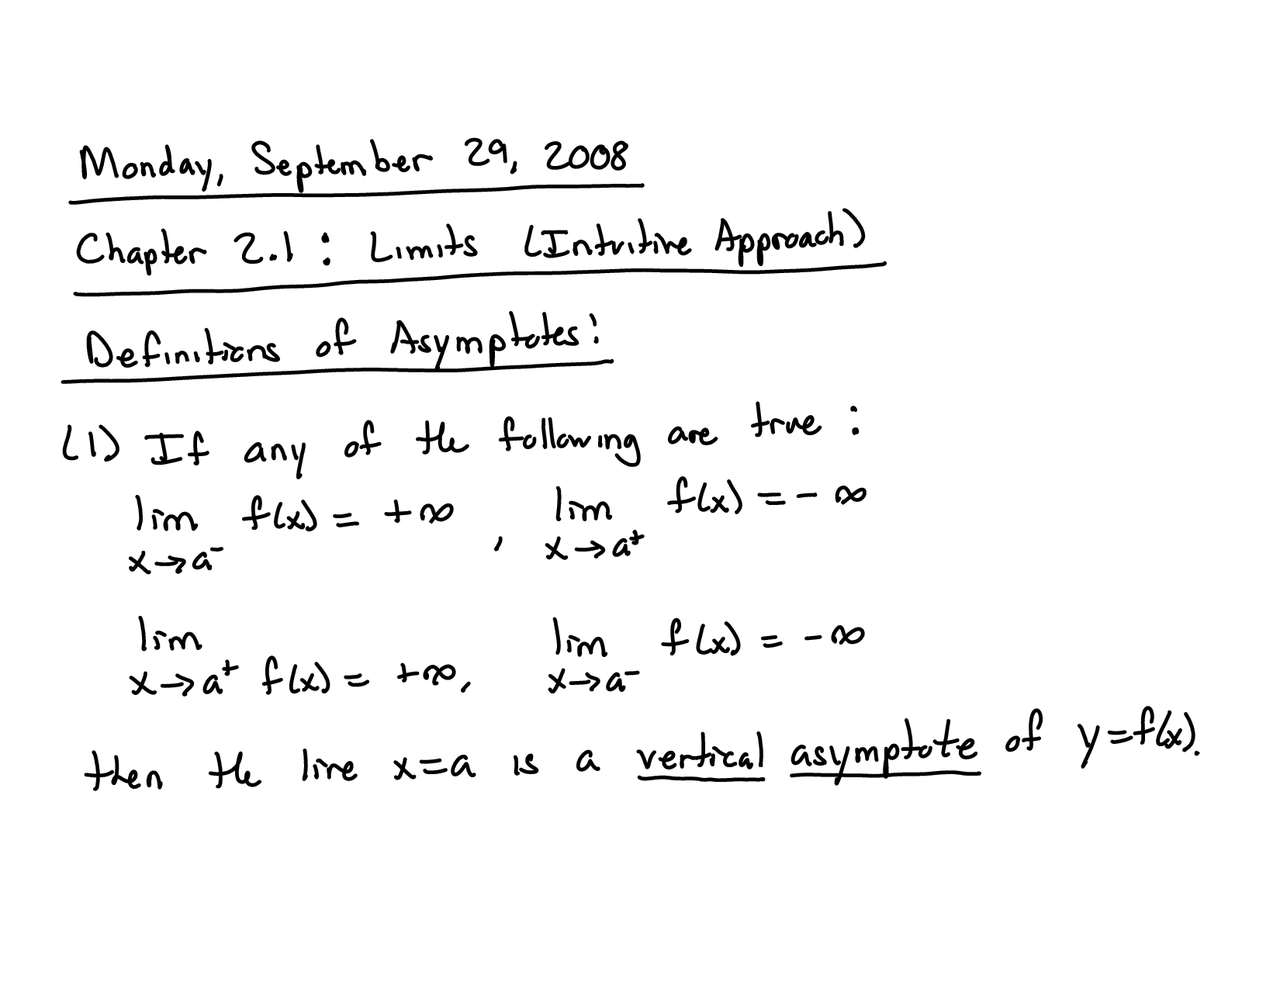 Monday, September 29, 2008
Chapter 2.1 : Limits (Intuitive Approach)
Definitions of Asymptotes:
(1) If any of the following are true :
lim f(x) = +∞ , lim f(x) = - ∞
x→a⁻ x→a⁺
lim lim f(x) = -∞
x→a⁺ f(x) = +∞, x→a⁻
then the line x=a is a vertical asymptote of y=f(x).